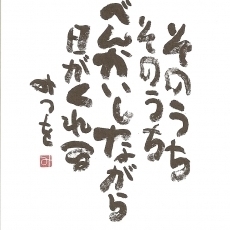 そのうち
そのうち
べんかいしながら
日がくれる
みつを